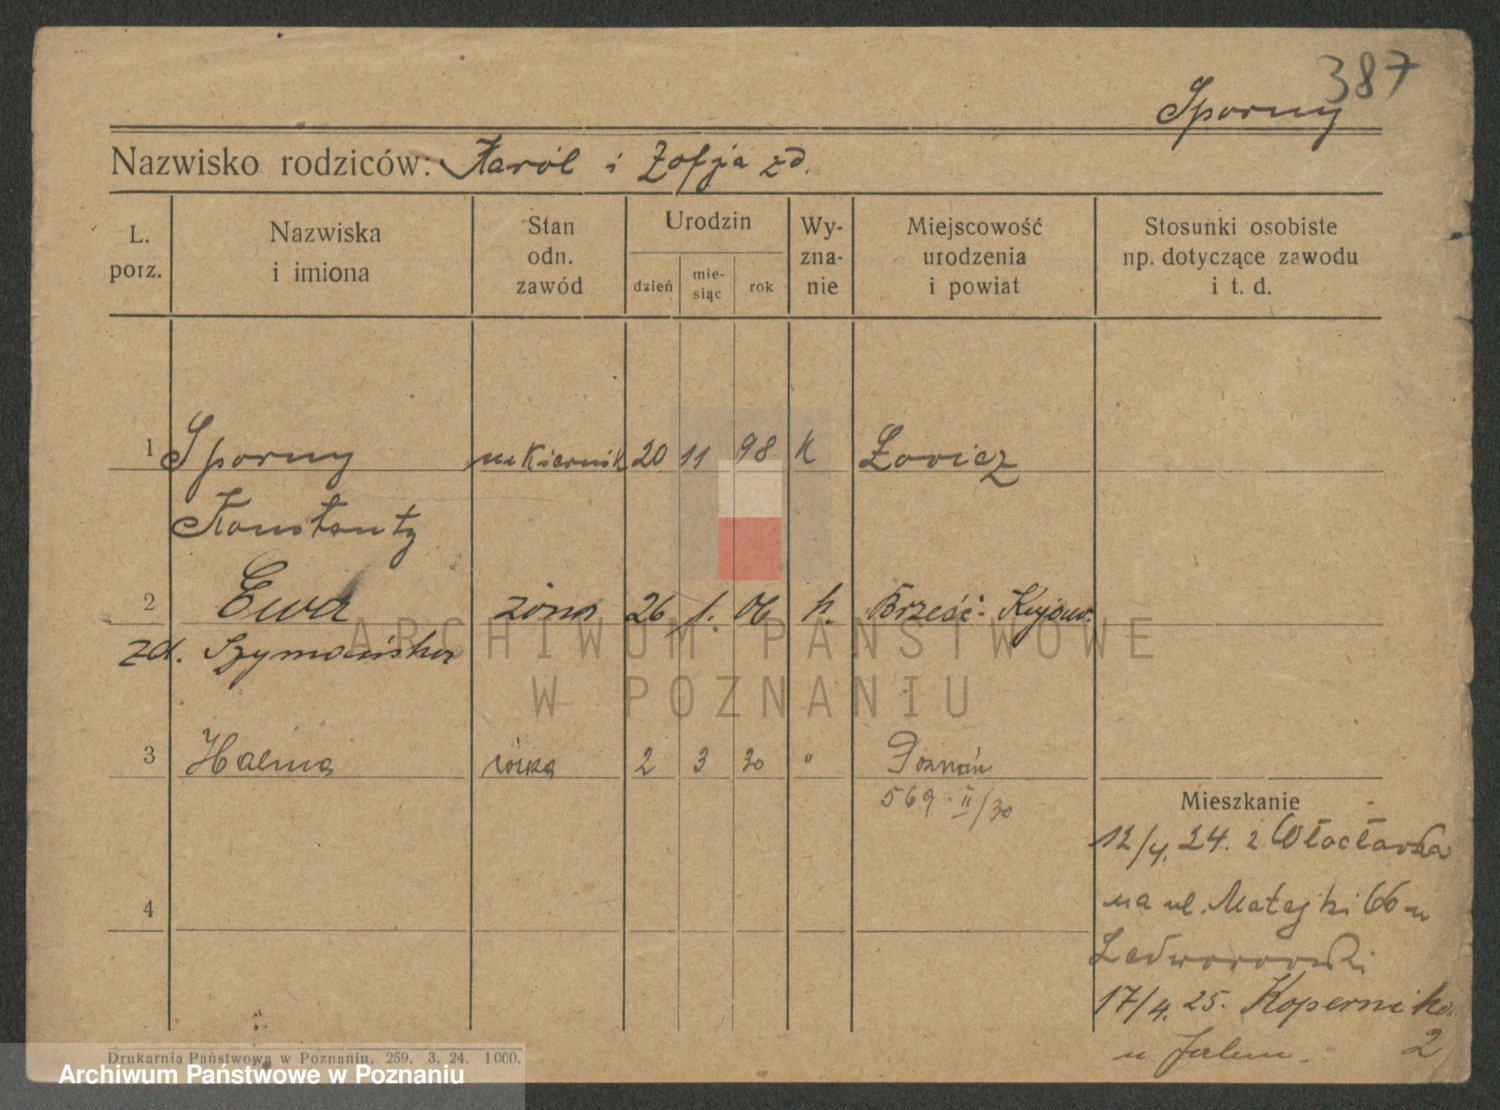 387
Sporny
Nazwisko rodziców: Karól i Zofja zd.
L. porz.
Nazwiska i imiona
Stan odn. zawód
Urodzin
dzień
mie-
siąc
rok
Wy-
zna-
nie
Miejscowość urodzenia i powiat
Stosunki osobiste np. dotyczące zawodu i t. d.
1 Sporny cukiernik 20 11 98 K Łowicz
Konstanty
2 Ewa żona 26 1. 06 k. Brześć-Kujaw.
zd. Szymańska
3 Halina córka 2 3 30 " Poznań
569. II/30
Mieszkanie
12/4. 24. z Włocławka
4
na ul. Matejki 66 u
17/4. 25. Kopernika
2
u
Drukarnia Państwowa w Poznaniu. 259. 3. 24. 1000.
ARCHIWUM PAŃSTWOWE
W POZNANIU
Archiwum Państwowe w Poznaniu